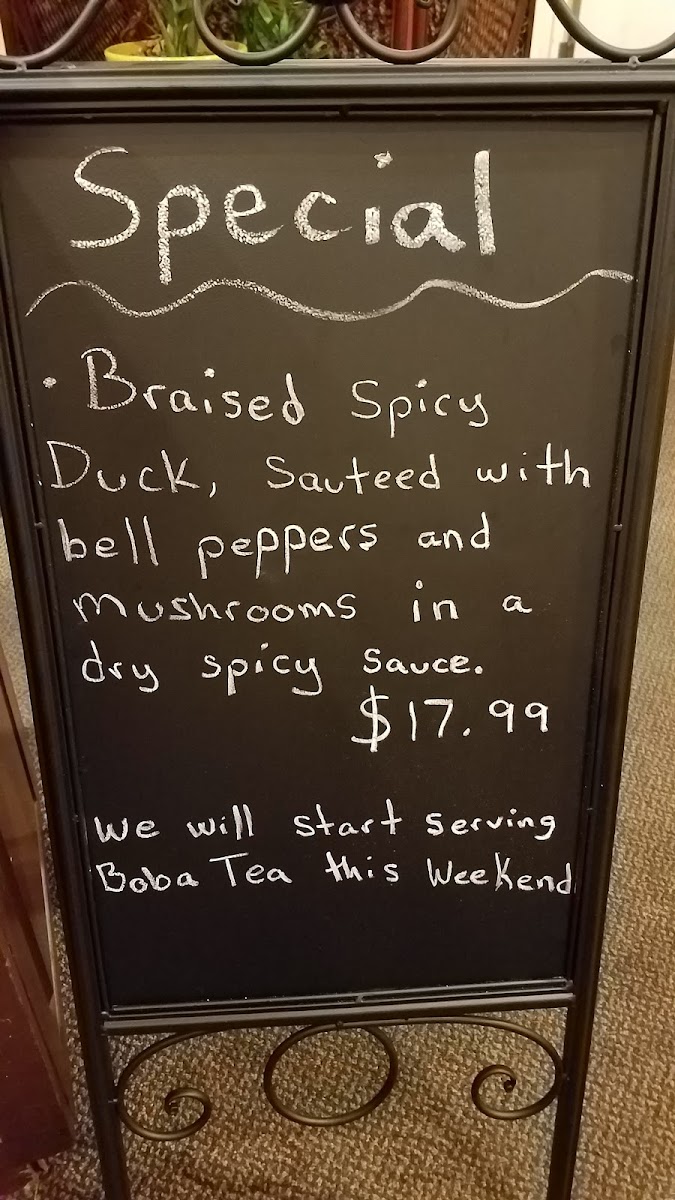 Special
• Braised Spicy
Duck, Sauteed with
bell peppers and
mushrooms in a
dry spicy sauce.
$17.99
We will start serving
Boba Tea this Weekend